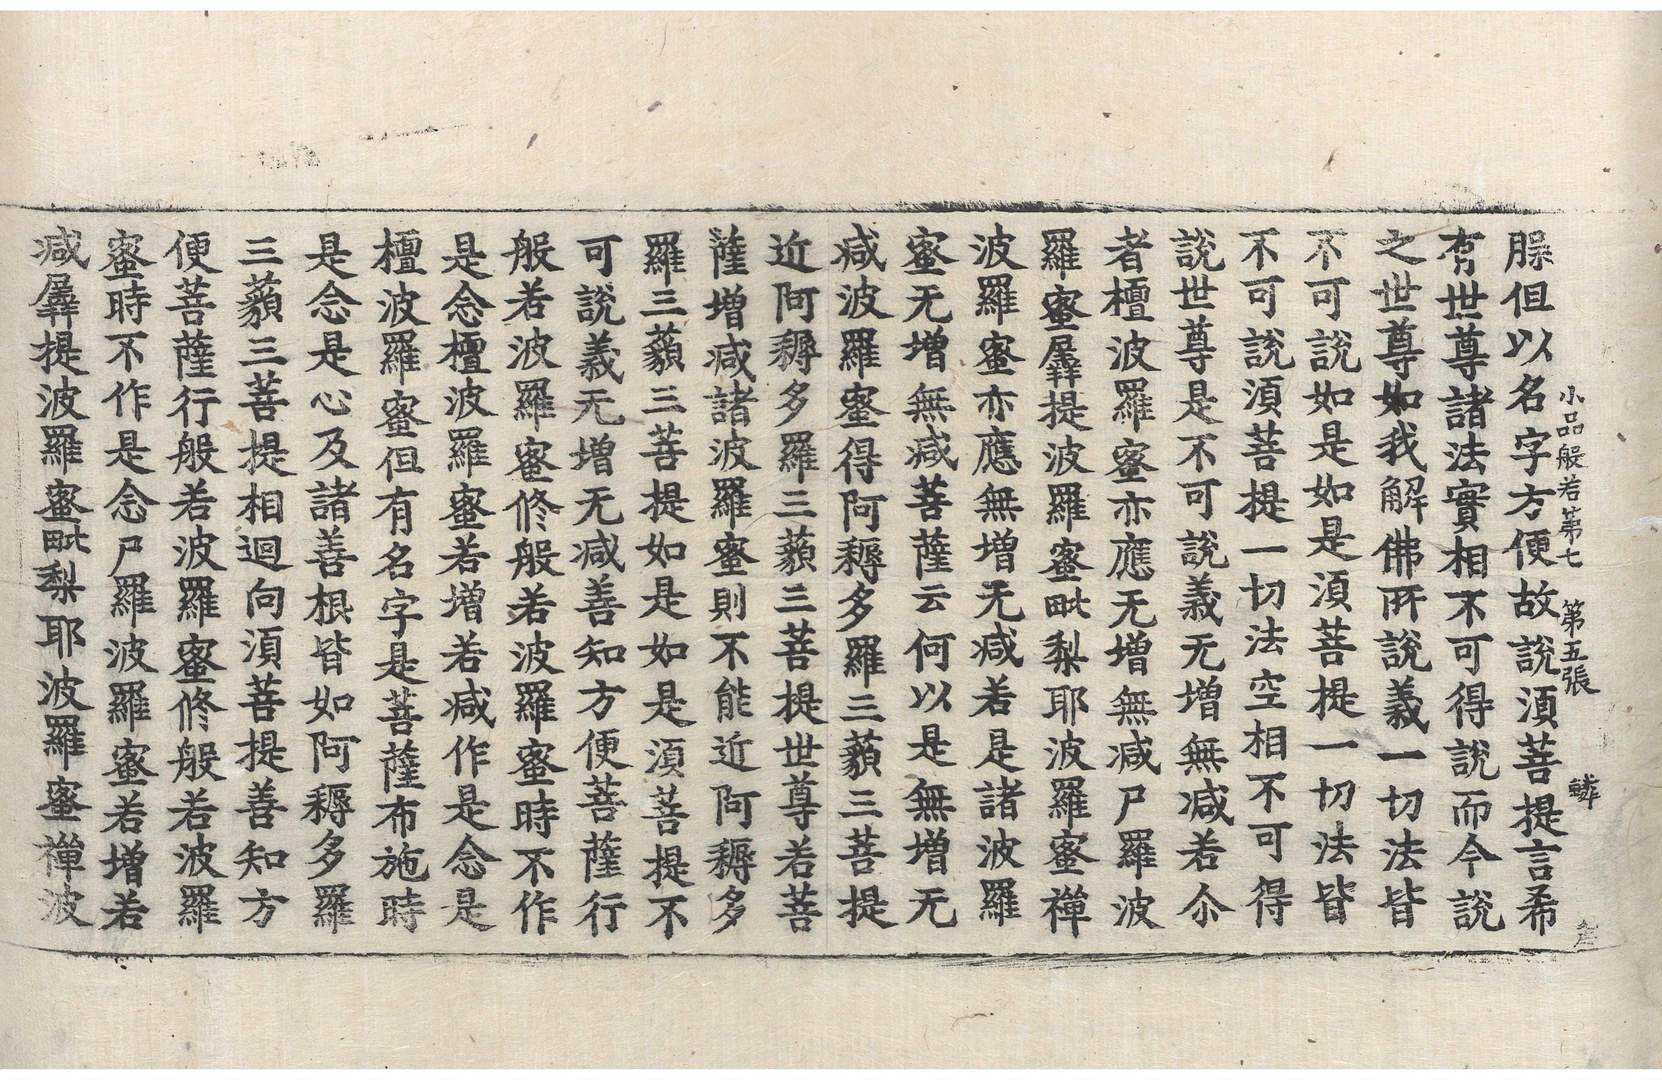 小品般若第七 第五張 鱗
但以名字方便故說須菩提言希
有世尊諸法實相不可得說而今說
之世尊如我解佛所說義一切法皆
不可說如是如是須菩提一切法皆
不可說須菩提一切法空相不可得
說世尊是不可說義无增無减若尒
者檀波羅蜜亦應无增無减尸羅波
羅蜜羼提波羅蜜毗梨耶波羅蜜禪
波羅蜜亦應無增无减若是諸波羅
蜜无增無减菩薩云何以是無增无
减波羅蜜得阿耨多羅三藐三菩提
近阿耨多羅三藐三菩提世尊若菩
薩增减諸波羅蜜則不能近阿耨多
羅三藐三菩提如是如是須菩提不
可說義无增无减善知方便菩薩行
般若波羅蜜修般若波羅蜜時不作
是念檀波羅蜜若增若减作是念是
檀波羅蜜但有名字是菩薩布施時
是念是心及諸善根皆如阿耨多羅
三藐三菩提相迴向須菩提善知方
便菩薩行般若波羅蜜修般若波羅
蜜時不作是念尸羅波羅蜜若增若
减羼提波羅蜜毗梨耶波羅蜜禪波